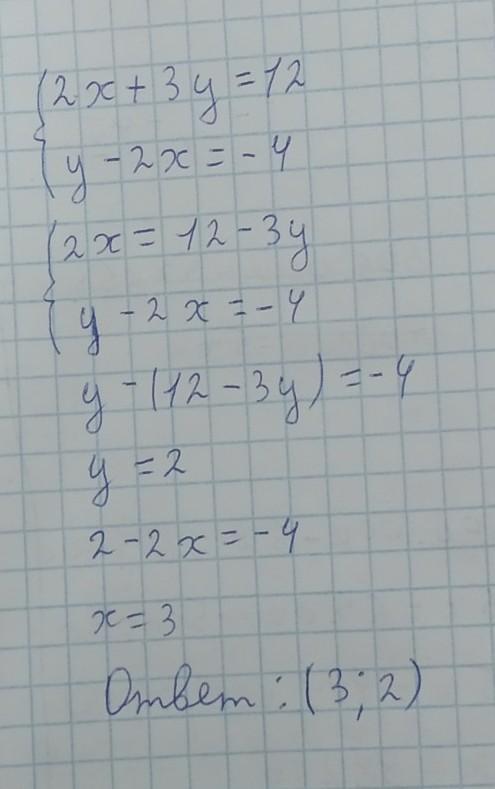 2x + 3y = 12
y - 2x = - 4
2x = 12 - 3y
y - 2x = - 4
y - (12 - 3y) = - 4
y = 2
2 - 2x = - 4
x = 3
Ответ: (3; 2)